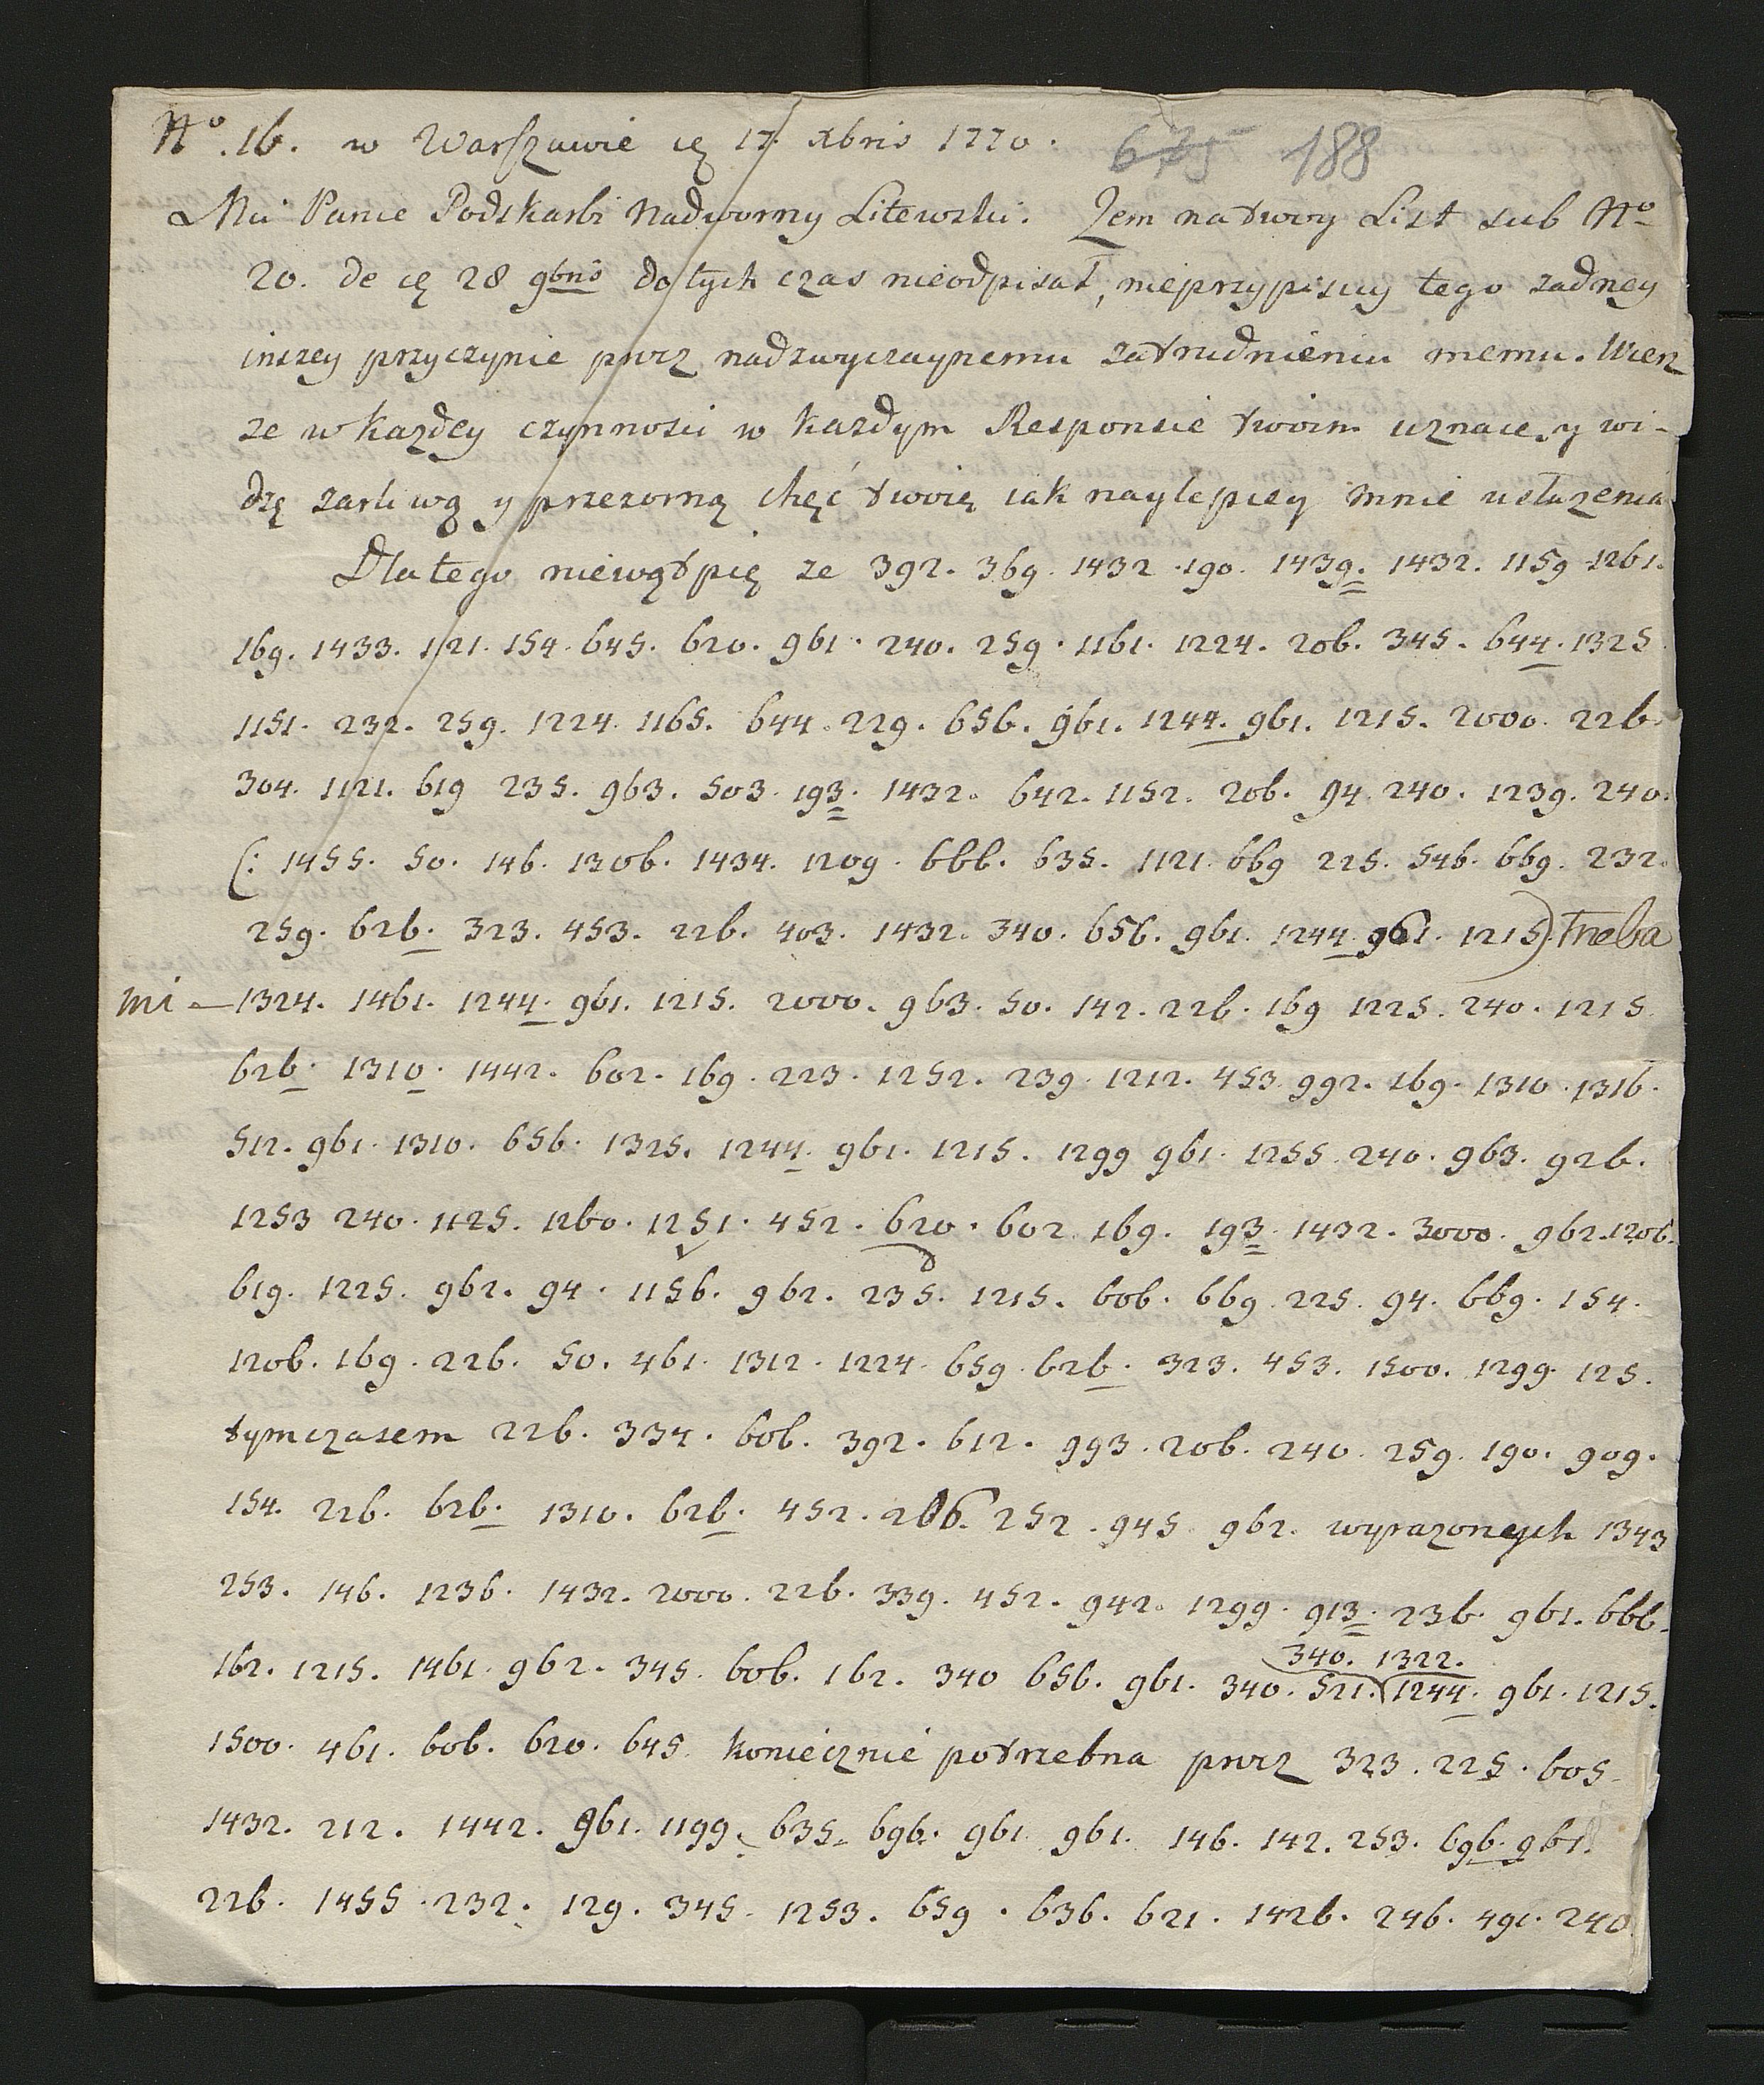 No. 16. w Warszawie ię 17. xbris 1770. 675 188
Mci Panie Podskarbi Nadworny Litewski. Zem na twoy List sub No
20. de ię 28 9bris do tych czas nieodpisał, nieprzypisuy tego zadney
inszey przyczynie prócz nadzwyczaynemu zatrudnieniu memu. Wierz
ze w kazdey czynnosci w kazdym Responsie twoim uznaie, y wi-
dzę zarliwą y przezorną chęć twoię iak naylepiey mnie usłuzenia
Dla tego niewątpię ze 392. 369. 1432. 190. 1439. 1432. 1159 1261.
169. 1433. 1121. 154. 645. 620. 961. 240. 259. 1161. 1224. 206. 345. 644. 1325
1151. 232. 259. 1224. 1165. 644. 229. 656. 961. 1244. 961. 1215. 2000. 226.
304. 1121. 619 235. 963. 503. 193. 1432. 642. 1152. 206. 94. 240. 1239. 240.
(: 1455. 50. 146. 1306. 1434. 1209. 666. 635. 1121. 669 225. 546. 669. 232.
259. 626. 323. 453. 226. 403. 1432. 340. 656. 961. 1244. 961. 1215) Treba
mi - 1324. 1461. 1244. 961. 1215. 2000. 963. 50. 142. 226. 169 1225. 240. 1215
626. 1310. 1442. 602. 169. 223. 1252. 239. 1212. 453. 992. 169. 1310. 1316.
512. 961. 1310. 656. 1325. 1244. 961. 1215. 1299 961. 1255. 240. 963. 926.
1253 240. 1125. 1260. 1251. 452. 620. 602. 169. 193. 1432. 3000. 962. 1206.
619. 1225. 962. 94. 1156. 962. 235. 1215. 606. 669. 225. 94. 669. 154.
1206. 169. 226. 50. 461. 1312. 1224. 659. 626. 323. 453. 1500. 1299. 125.
tymczasem 226. 334. 606. 392. 612. 993. 206. 240. 259. 190. 909.
154. 226. 626. 1310. 626. 452. 266. 252. 945. 962. wyrazonych 1343
253. 146. 1236. 1432. 2000. 226. 339. 452. 942. 1299. 913. 236. 961. 666.
340. 1322.
162. 1215. 1461. 962. 345. 606. 162. 340 656. 961. 340. 521. 1244. 961. 1215.
1500. 461. 606. 620. 645. koniecznie potrzebna prócz 323. 225. 605.
1432. 212. 1442. 961. 1199. 635. 696. 961 961. 146. 142. 253. 696. 961.
226. 1455. 232. 129. 345. 1253. 659. 636. 621. 1426. 246. 491. 240